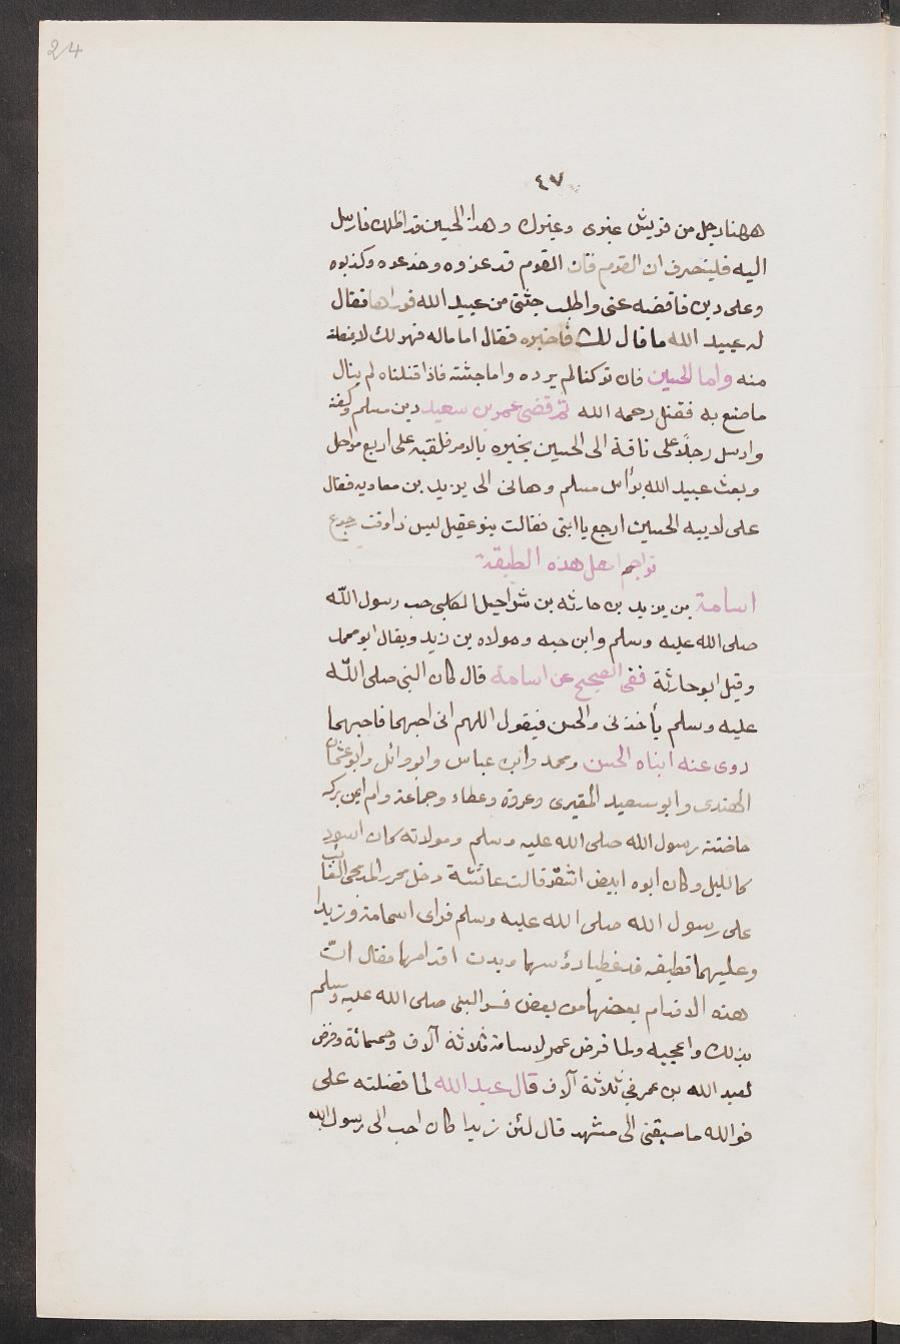 24
٤٧
ههنا رجل من قريش غيرى وغيرك وهذا الحسين قد اظلك فارسل
اليه فلينصرف ان القوم فان القوم قد غروه وخدعوه وكذبوه
وعلى دين فاقضه عنى واطلب جثتى من عبيد الله فوراها فقال
له عبيد الله ما قال لك فاخبره فقال اما ماله فهو لك لا نمنعك
منه واما الحسين فان تركنا لم يرده واما جثته فاذا قتلناه لم ينال
ما صنع به فقتل رحمه الله ثم قضى عمر بن سعيد دين مسلم وكفنه
وارسل رجلا على ناقة الى الحسين يخبره بالامر فلقيه على اربع مراحل
وبعث عبيد الله برأس مسلم وهانى الى يزيد بن معاوية فقال
على لابيه الحسين ارجع يا ابتى فقالت بنو عقيل ليس ذا وقت رجوع
تراجم اهل هذه الطبقة
اسامة بن يزيد بن حارثه بن شراحيل الكلبى حب رسول الله
صلى الله عليه وسلم وابن حبه ومولاه بن زيد ويقال ابو محمد
وقيل ابو حارثة ففى الصحيح عن اسامة قال كان النبى صلى الله
عليه وسلم يأخذنى والحسن فيقول اللهم انى احبهما فاحبهما
روى عنه ابناه الحسن ومحمد وابن عباس وابو وائل وابو عثمان
الهندى وابو سعيد المقبرى وعروة وعطاء وجماعة وام ايمن بركه
حاضنة رسول الله صلى الله عليه وسلم ومولاته كان اسود
كالليل وكان ابوه ابيض اشقر قالت عائشة دخل محرر المدلجى القائف
على رسول الله صلى الله عليه وسلم فراى اسامة وزيدا
وعليهما قطيفه قد غطيا رؤسهما وبدت اقدامهما فقال ان
هذه الاقدام بعضها من بعض فسر النبى صلى الله عليه وسلم
بذلك واعجبه ولما فرض عمر لاسامة ثلاثة آلاف وخمسمائة وفرض
لعبد الله بن عمر فى ثلاثة آلاف قال عبد الله لما فضلته على
فوالله ما سبقنى الى مشهد قال لئن زيدا كان احب الى رسول الله